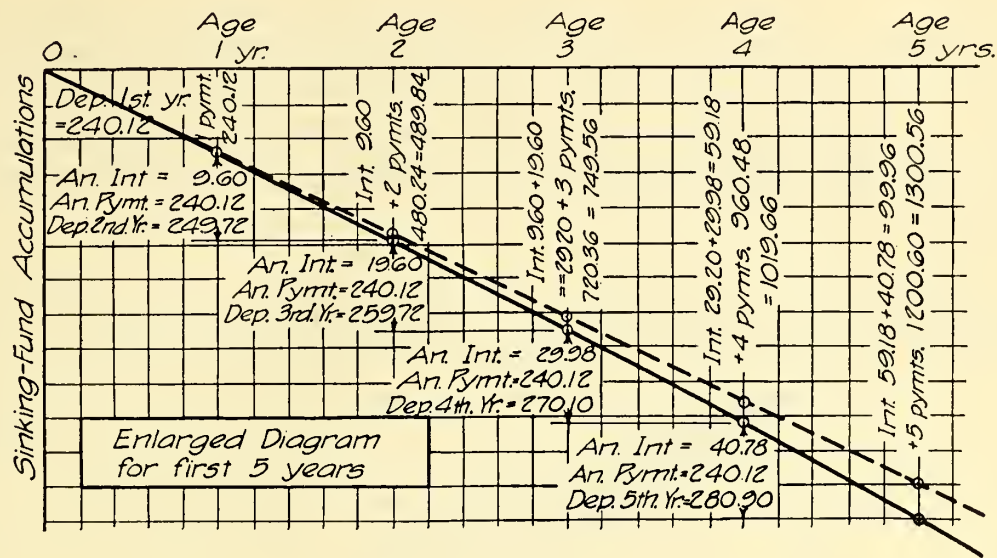 Age Age Age Age Age
0. 1 yr. 2 3 4 5 yrs.
Sinking-Fund Accumulations
Dep. 1st. yr.
=240.12
1 pymt.
240.12
An. Int = 9.60
An. Pymt.= 240.12
Dep. 2nd. Yr. = 249.72
Int. 9.60
+2 pymts.
480.24=489.84
An. Int = 19.60
An. Pymt=240.12
Dep. 3rd. Yr.=259.72
Int. 9.60+19.60
==29.20 + 3 pymts.
720.36 = 749.56
An. Int. = 29.98
An. Pymt.=240.12
Dep. 4th. Yr.=270.10
Int. 29.20+29.98=59.18
+4 pymts. 960.48.
=1019.66
An. Int = 40.78
An. Pymt.=240.12
Dep. 5th. Yr.=280.90
Int. 59.18+40.78 = 99.96
+5 pymts. 1200.60 = 1300.56
Enlarged Diagram
for first 5 years